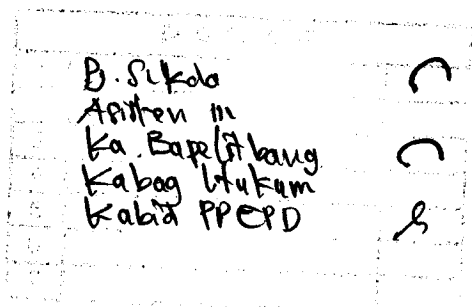 B. Sikda
Asisten III
Ka. Bapelitbang
Kabag Hukum
Kabid PPEPD